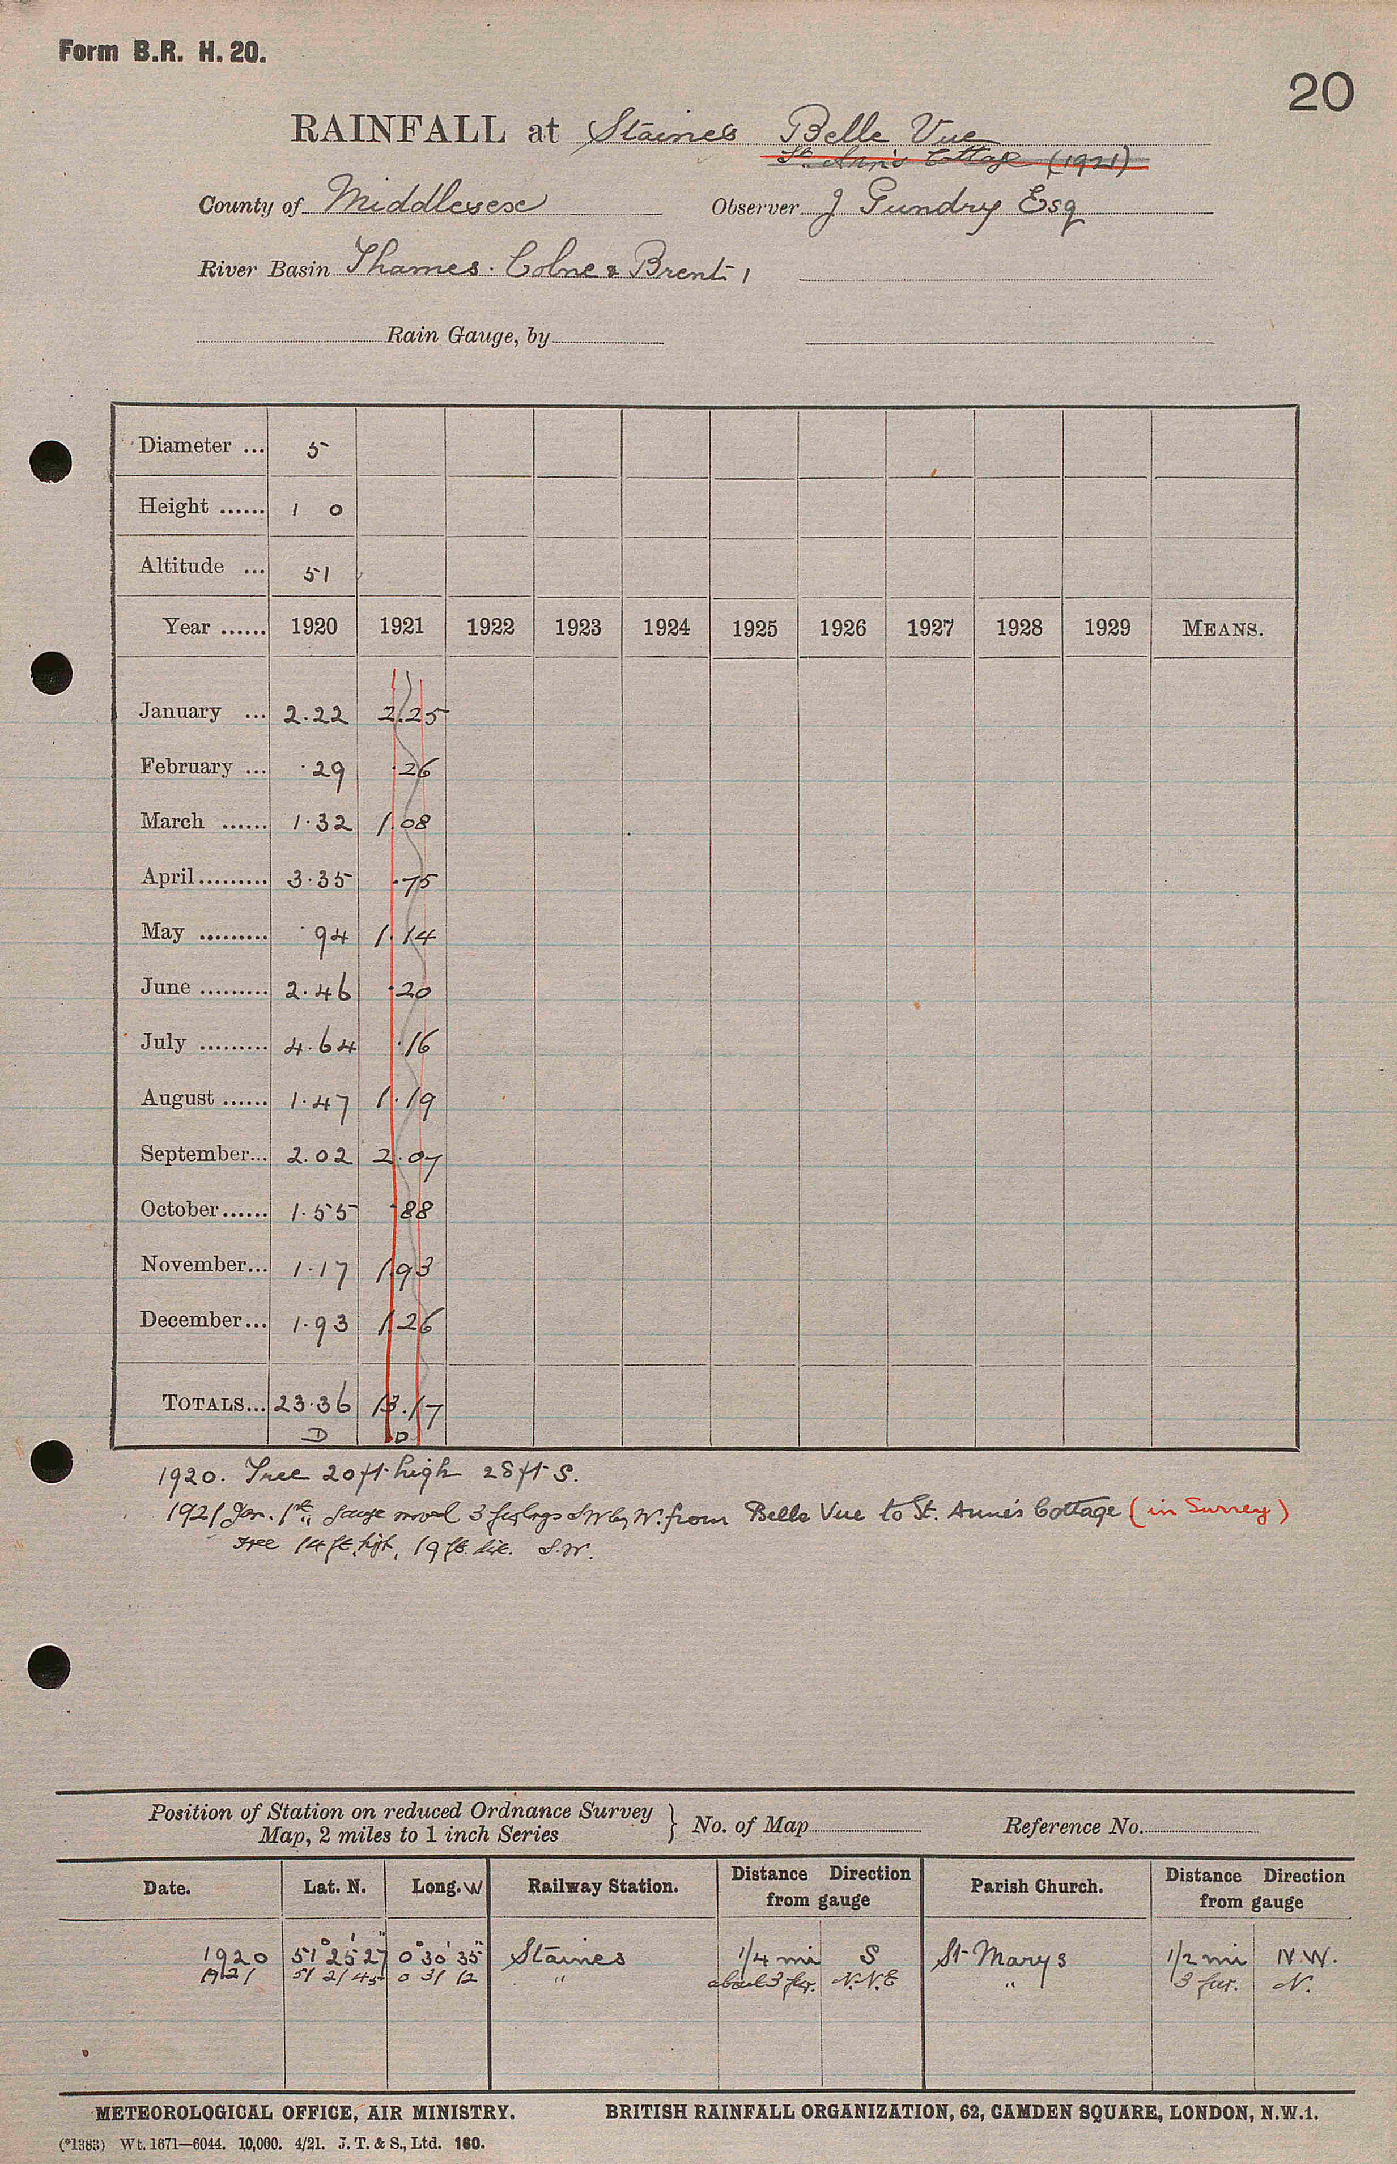 Form B.R. H. 20.
20
RAINFALL at Staines Belle Vue
St. Ann's Cottage (1921)
County of Middlesex Observer J Gundry Esq
River Basin Thames. Colne & Brent 1
Rain Gauge, by
Diameter ... 5
Height ...... 1 0
Altitude ... 51
Year ...... 1920 1921 1922 1923 1924 1925 1926 1927 1928 1929 MEANS.
January ... 2.22 2.25
February ... .29 .26
March ...... 1.32 1.08
April ......... 3.35 .75
May ......... .94 1.14
June ......... 2.46 .20
July ......... 4.64 .16
August ...... 1.47 1.19
September... 2.02 2.07
October ...... 1.55 .88
November... 1.17 1.93
December ... 1.93 1.26
TOTALS... 23.36 13.17
D D
1920. Tree 20ft high 28ft S.
1921 Jan. 1st, gauge moved 3 furlongs SW by W. from Belle Vue to St. Anne's Cottage (in Surrey)
Tree 14 ft. high, 19 ft. dist. S.W.
Position of Station on reduced Ordnance Survey
Map, 2 miles to 1 inch Series } No. of Map Reference No.
Date. Lat. N. Long. W Railway Station. Distance Direction from gauge Parish Church. Distance Direction from gauge
1920 51° 25' 27" 0° 30' 35" Staines 1/4 mi S St Marys 1/2 mi N.W.
1921 51 21 45 0 31 12 " about 3 fur. N.N.E " 3 fur. N.
METEOROLOGICAL OFFICE, AIR MINISTRY. BRITISH RAINFALL ORGANIZATION, 62, CAMDEN SQUARE, LONDON, N.W.1.
(*1383) Wt. 1671—6044. 10,000. 4/21. J. T. & S., Ltd. 160.